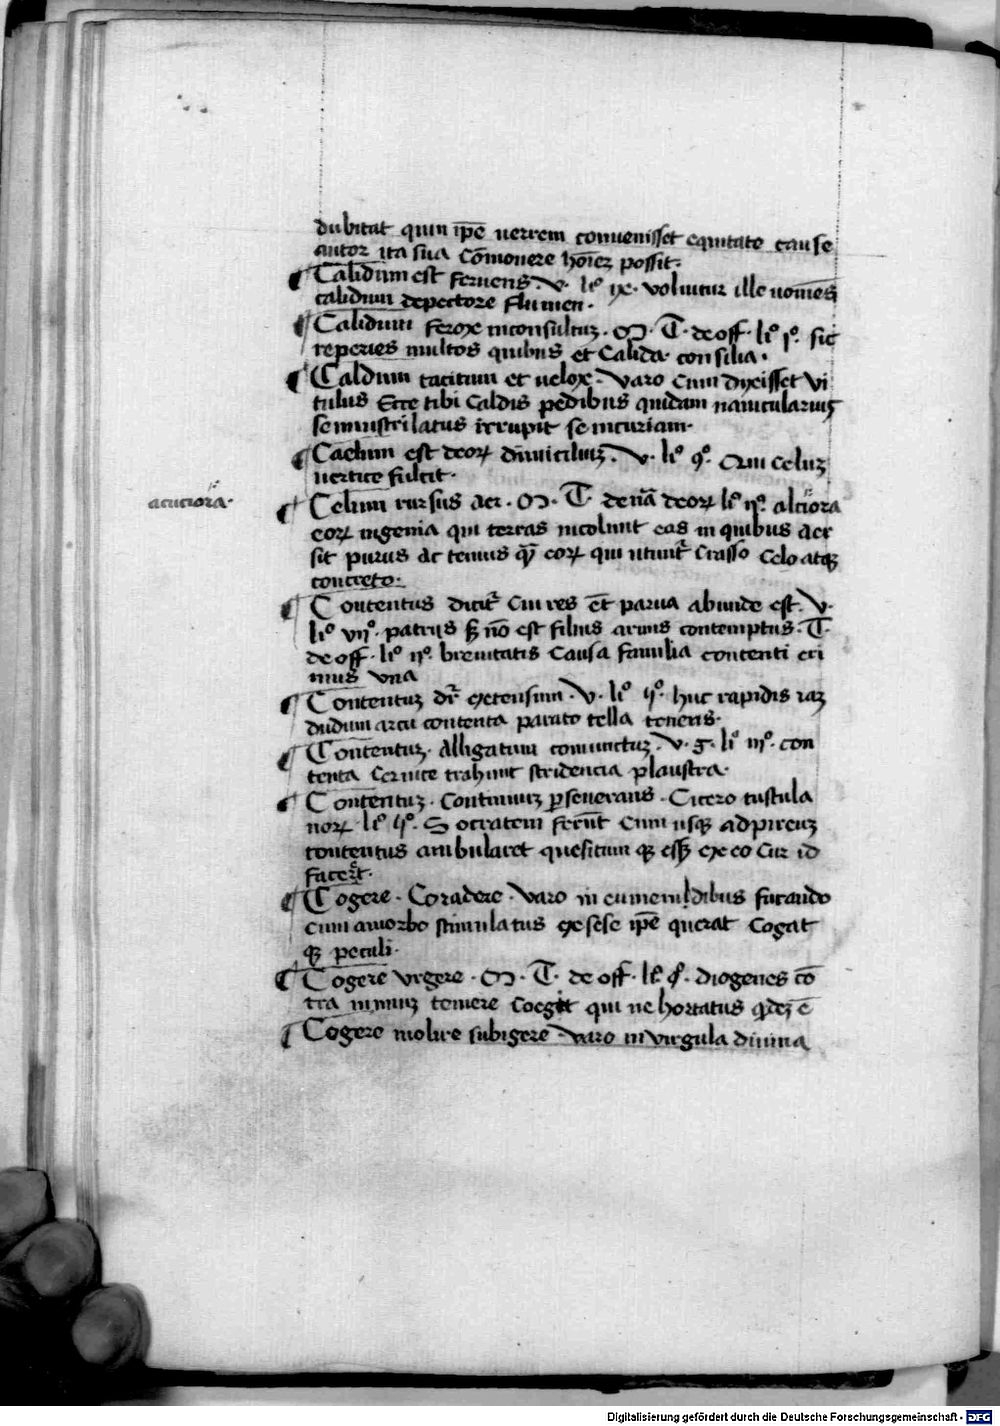 dubitat quin ip̄e uerrem conuenisset equitate cause
autor ita sua cōmouere hoīez possit.
Calidum est feruens. V. liº ix. voluitur ille uomēs
calidum depectore flumen.
Calidum ferox inconsultuz. M. T. de off. liº jº. sic
reperies multos quibus et calida consilia.
Caldum tacitum et uelox. varo cum dixisset vi
tulus Ecce tibi caldis pedibus quidam nauicularius
semiustilatus irrupit se incuriam.
Caelum est deoꝝ diuiciliuz. V. liº qº. Qui celuz
uertice fulcit.
Celum rursus aer. M. T. de nā deoꝝ liº ijº. altiora
acuciora.
eoꝝ ingenia qui terras incolunt eas in quibus aer
sit purus ac tenuis qꝫ eoꝝ qui utunt̄ crasso celo atqꝫ
concreto.
Contentus dicit̄ cui res et parua abunde est. V.
liº vijº. patriis sꝫ nō est filius armis contemptus. T.
de off. liº ijº. breuitatis causa familia contenti eri
mus vna
Contentuz dr̄ extensum. V. liº ijº. huc rapidis iaz
dudum arcu contenta parato tella teneris.
Contentuz. alligatum coniunctuz. V. g. liº iijº. con
tenta ceruice trahunt stridencia plaustra.
Contentuz. Continuuz perseuerans. Cicero tustula
noꝝ liº ijº. Socratem ferūt cum usqꝫ ad pirenz
contentus ambularet quesitum qꝫ esset ex eo cur id
facer̄t.
Cogere. Coradere. varo in eumenidibus furando
cum amorbo stimulatus ex sese ip̄e querat cogat
qꝫ peculi.
Cogere vrgere. M. T. de off. liº qº. diogenes cō
tra inimuz temere coegit qui ne hortatus qdeꝫ ē
Cogere molire subigere. varo in virgula diuina
Digitalisierung gefördert durch die Deutsche Forschungsgemeinschaft - DFG